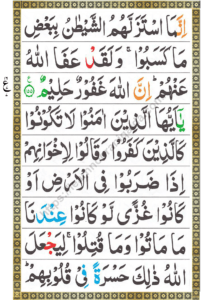 اِنَّمَا اسْتَزَلَّهُمُ الشَّيْطٰنُ بِبَعْضِ
مَا كَسَبُوْا ۚ وَلَقَدْ عَفَا اللّٰهُ
عَنْهُمْ ؕ اِنَّ اللّٰهَ غَفُوْرٌ حَلِيْمٌ ۝۱۵۵
يٰۤاَيُّهَا الَّذِيْنَ اٰمَنُوْا لَا تَكُوْنُوْا
كَالَّذِيْنَ كَفَرُوْا وَقَالُوْا لِاِخْوَانِهِمْ
اِذَا ضَرَبُوْا فِى الْاَرْضِ اَوْ
كَانُوْا غُزًّى لَّوْ كَانُوْا عِنْدَنَا
مَا مَاتُوْا وَمَا قُتِلُوْا ۚ لِيَجْعَلَ
اللّٰهُ ذٰلِكَ حَسْرَةً فِىْ قُلُوْبِهِمْ ؕ